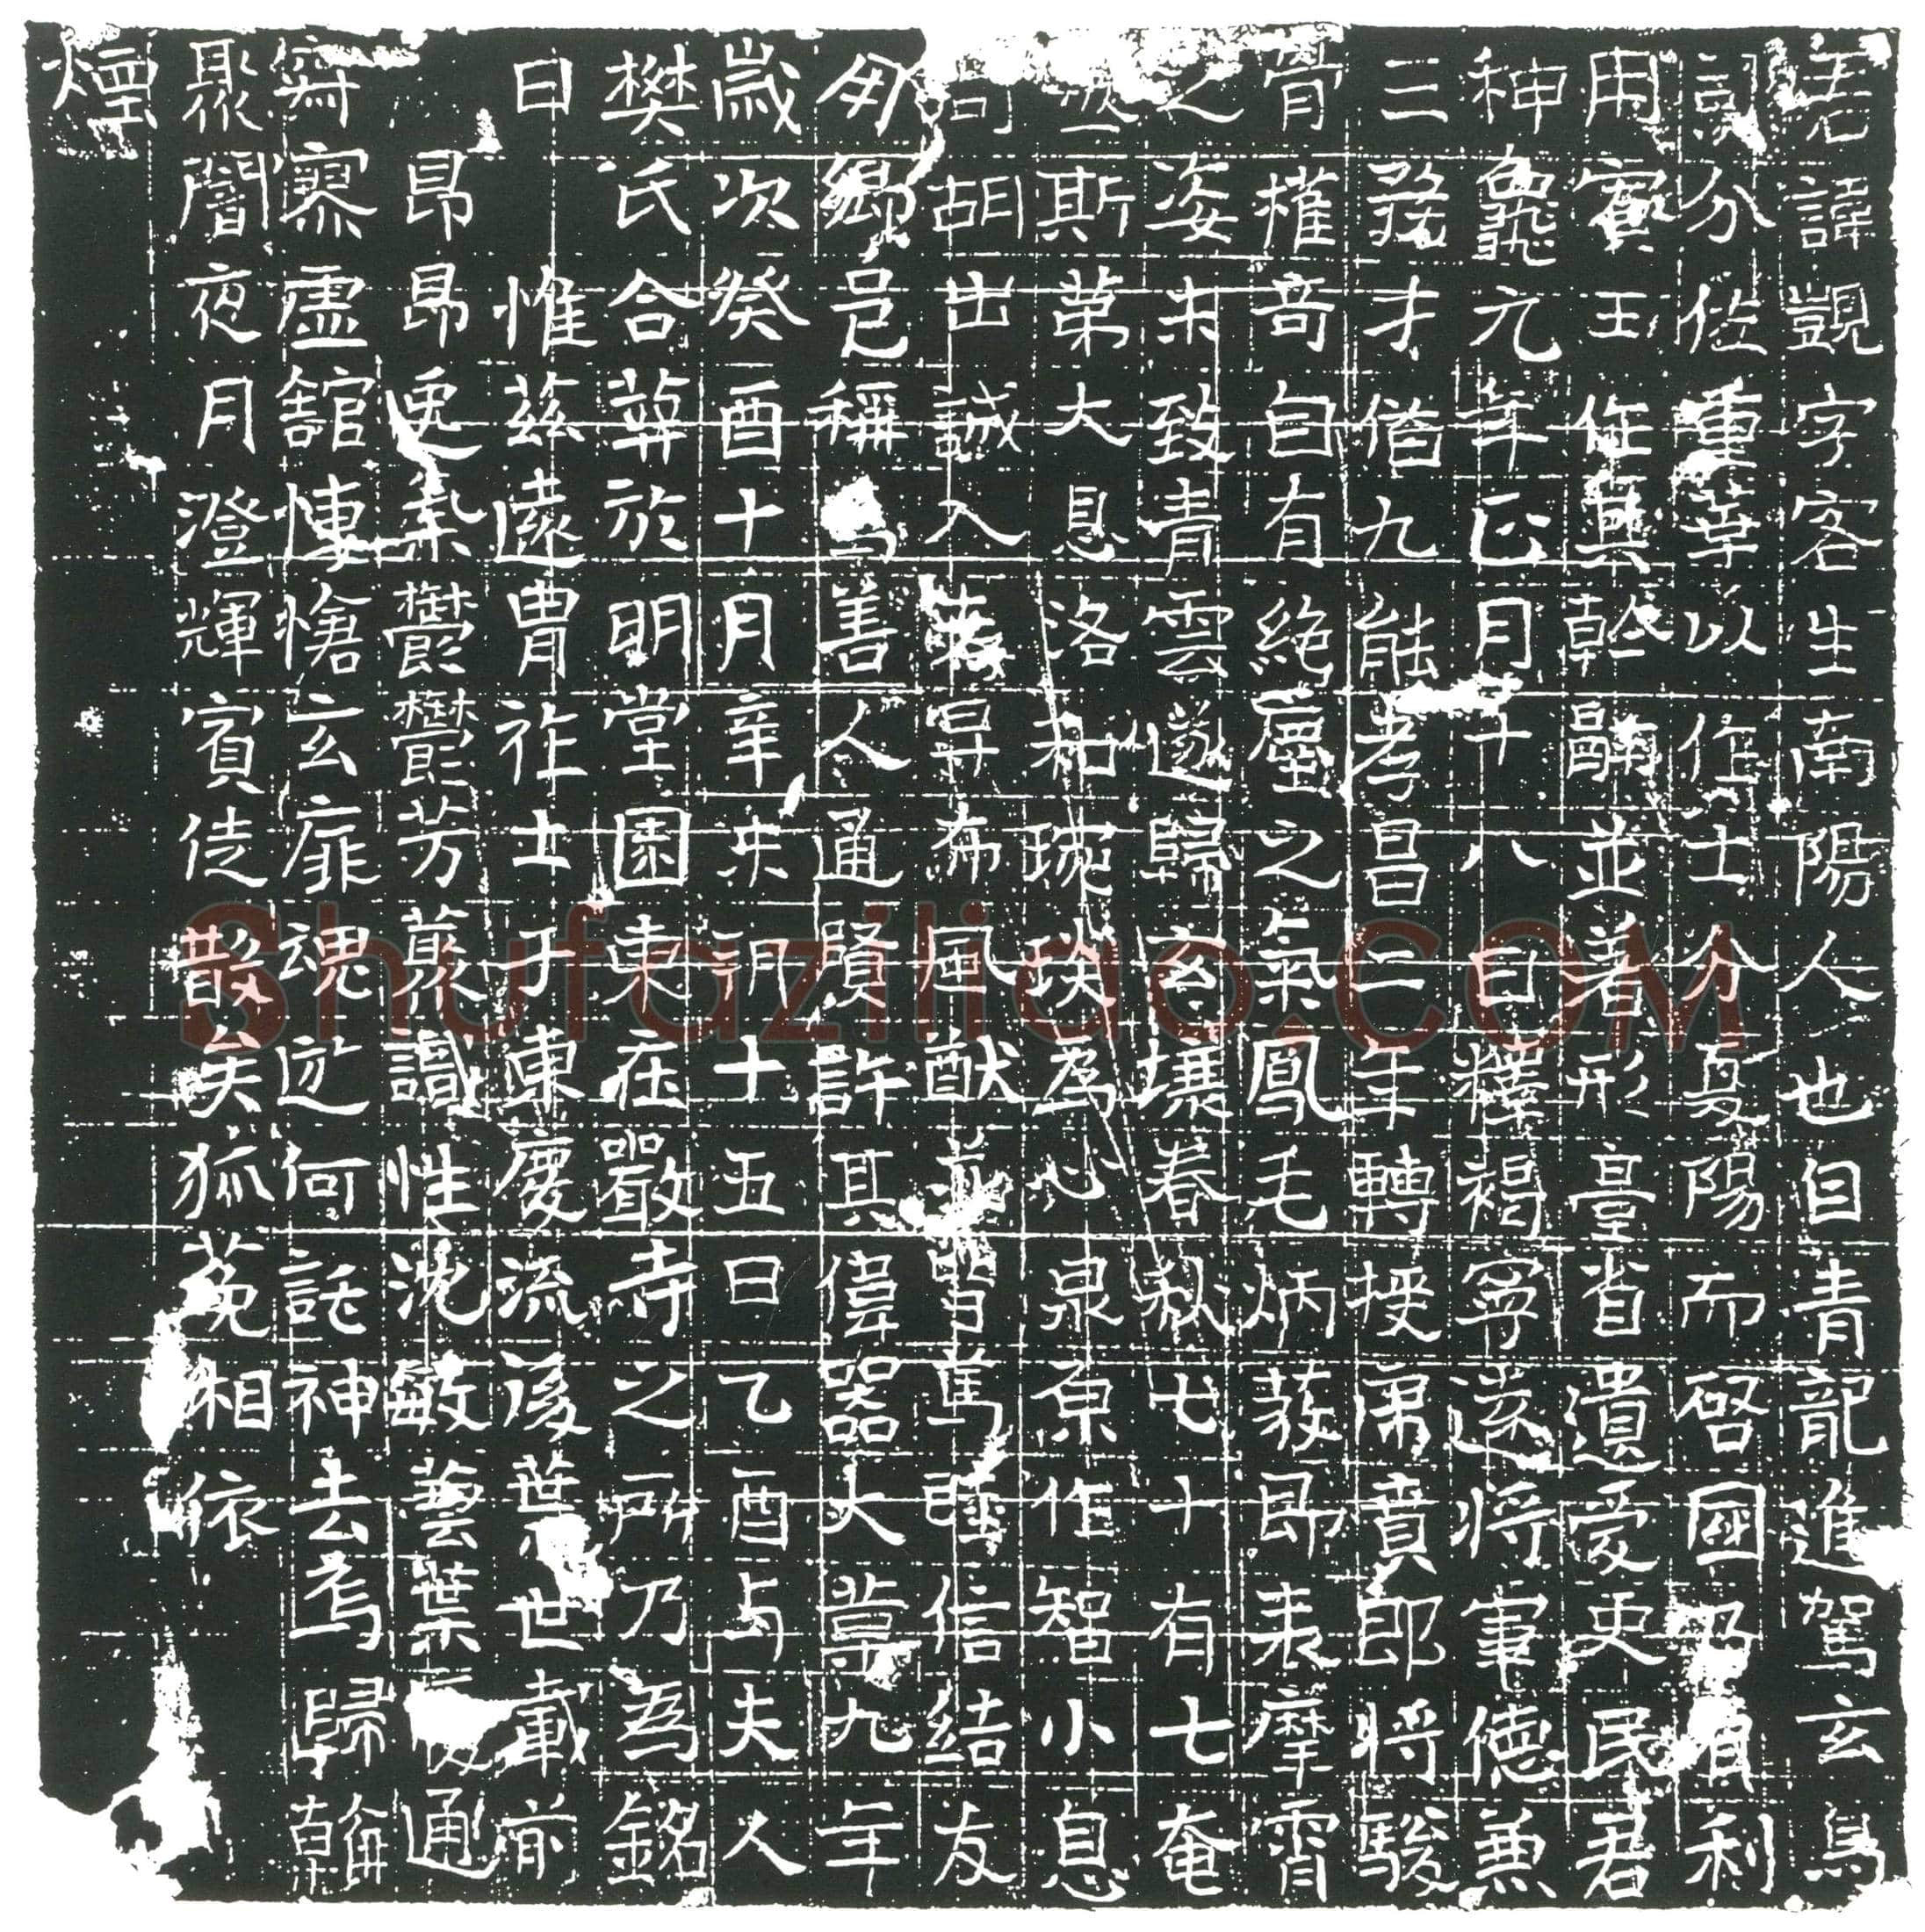 君諱觊字客生南陽人也自青龍進駕玄鳥
司分佐重華以作士分夏陽而啓國乃有利
用賓王作其幹嗣並著形臺省遺愛吏民君
神龜元年正月十八日釋褐寧遠將軍德兼
三務才偕九能孝昌二年轉授虎賁郎將駿
骨權奇自有絶塵之氣鳳毛炳蔚即表摩霄
之姿未致青雲遂歸玄壤春秋七十有七奄
斯第大息洛和琬琰爲心泉原作智小息
洞胡出誠入孝昇布風猷並篤睦信結友
匆鄉邑稱爲善人通賢許其偉器大尊九年
歲次癸酉十月辛未朔十五日乙酉与夫人
樊氏合葬於明堂園東在嚴寺之所乃为銘
曰
惟茲遠胄祚士于東慶流後葉世載前
昂昂更紊鬱鬱芳蕤識性沈敏藝業通
寂寥虛館悽愴玄扉魂迯何託神去焉歸翰
聚闇夜月澄輝賓徒散矣狐菟相依
煙
Shufaziliao.COM